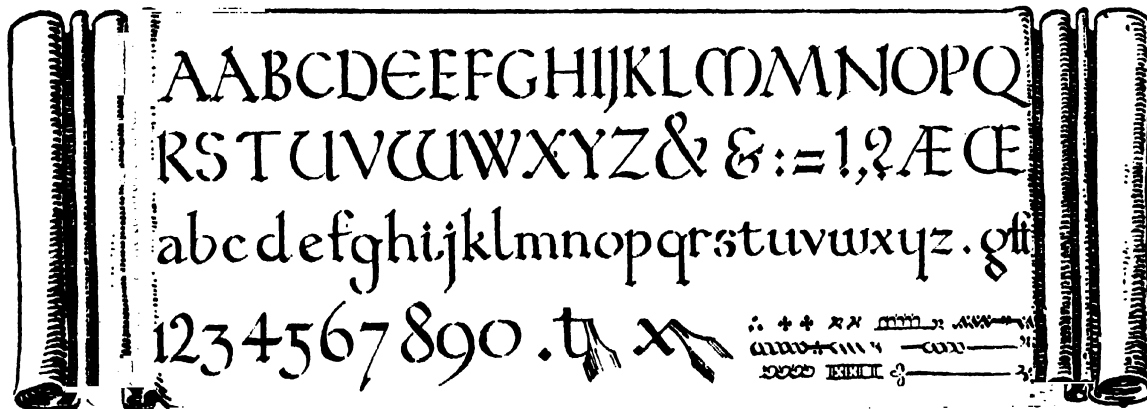 AABCDEEFGHIJKLMMNOPQ
RSTUVWWXYZ&&:=!,?ÆŒ
abcdefghijklmnopqrstuvwxyz.gff
1234567890.tx